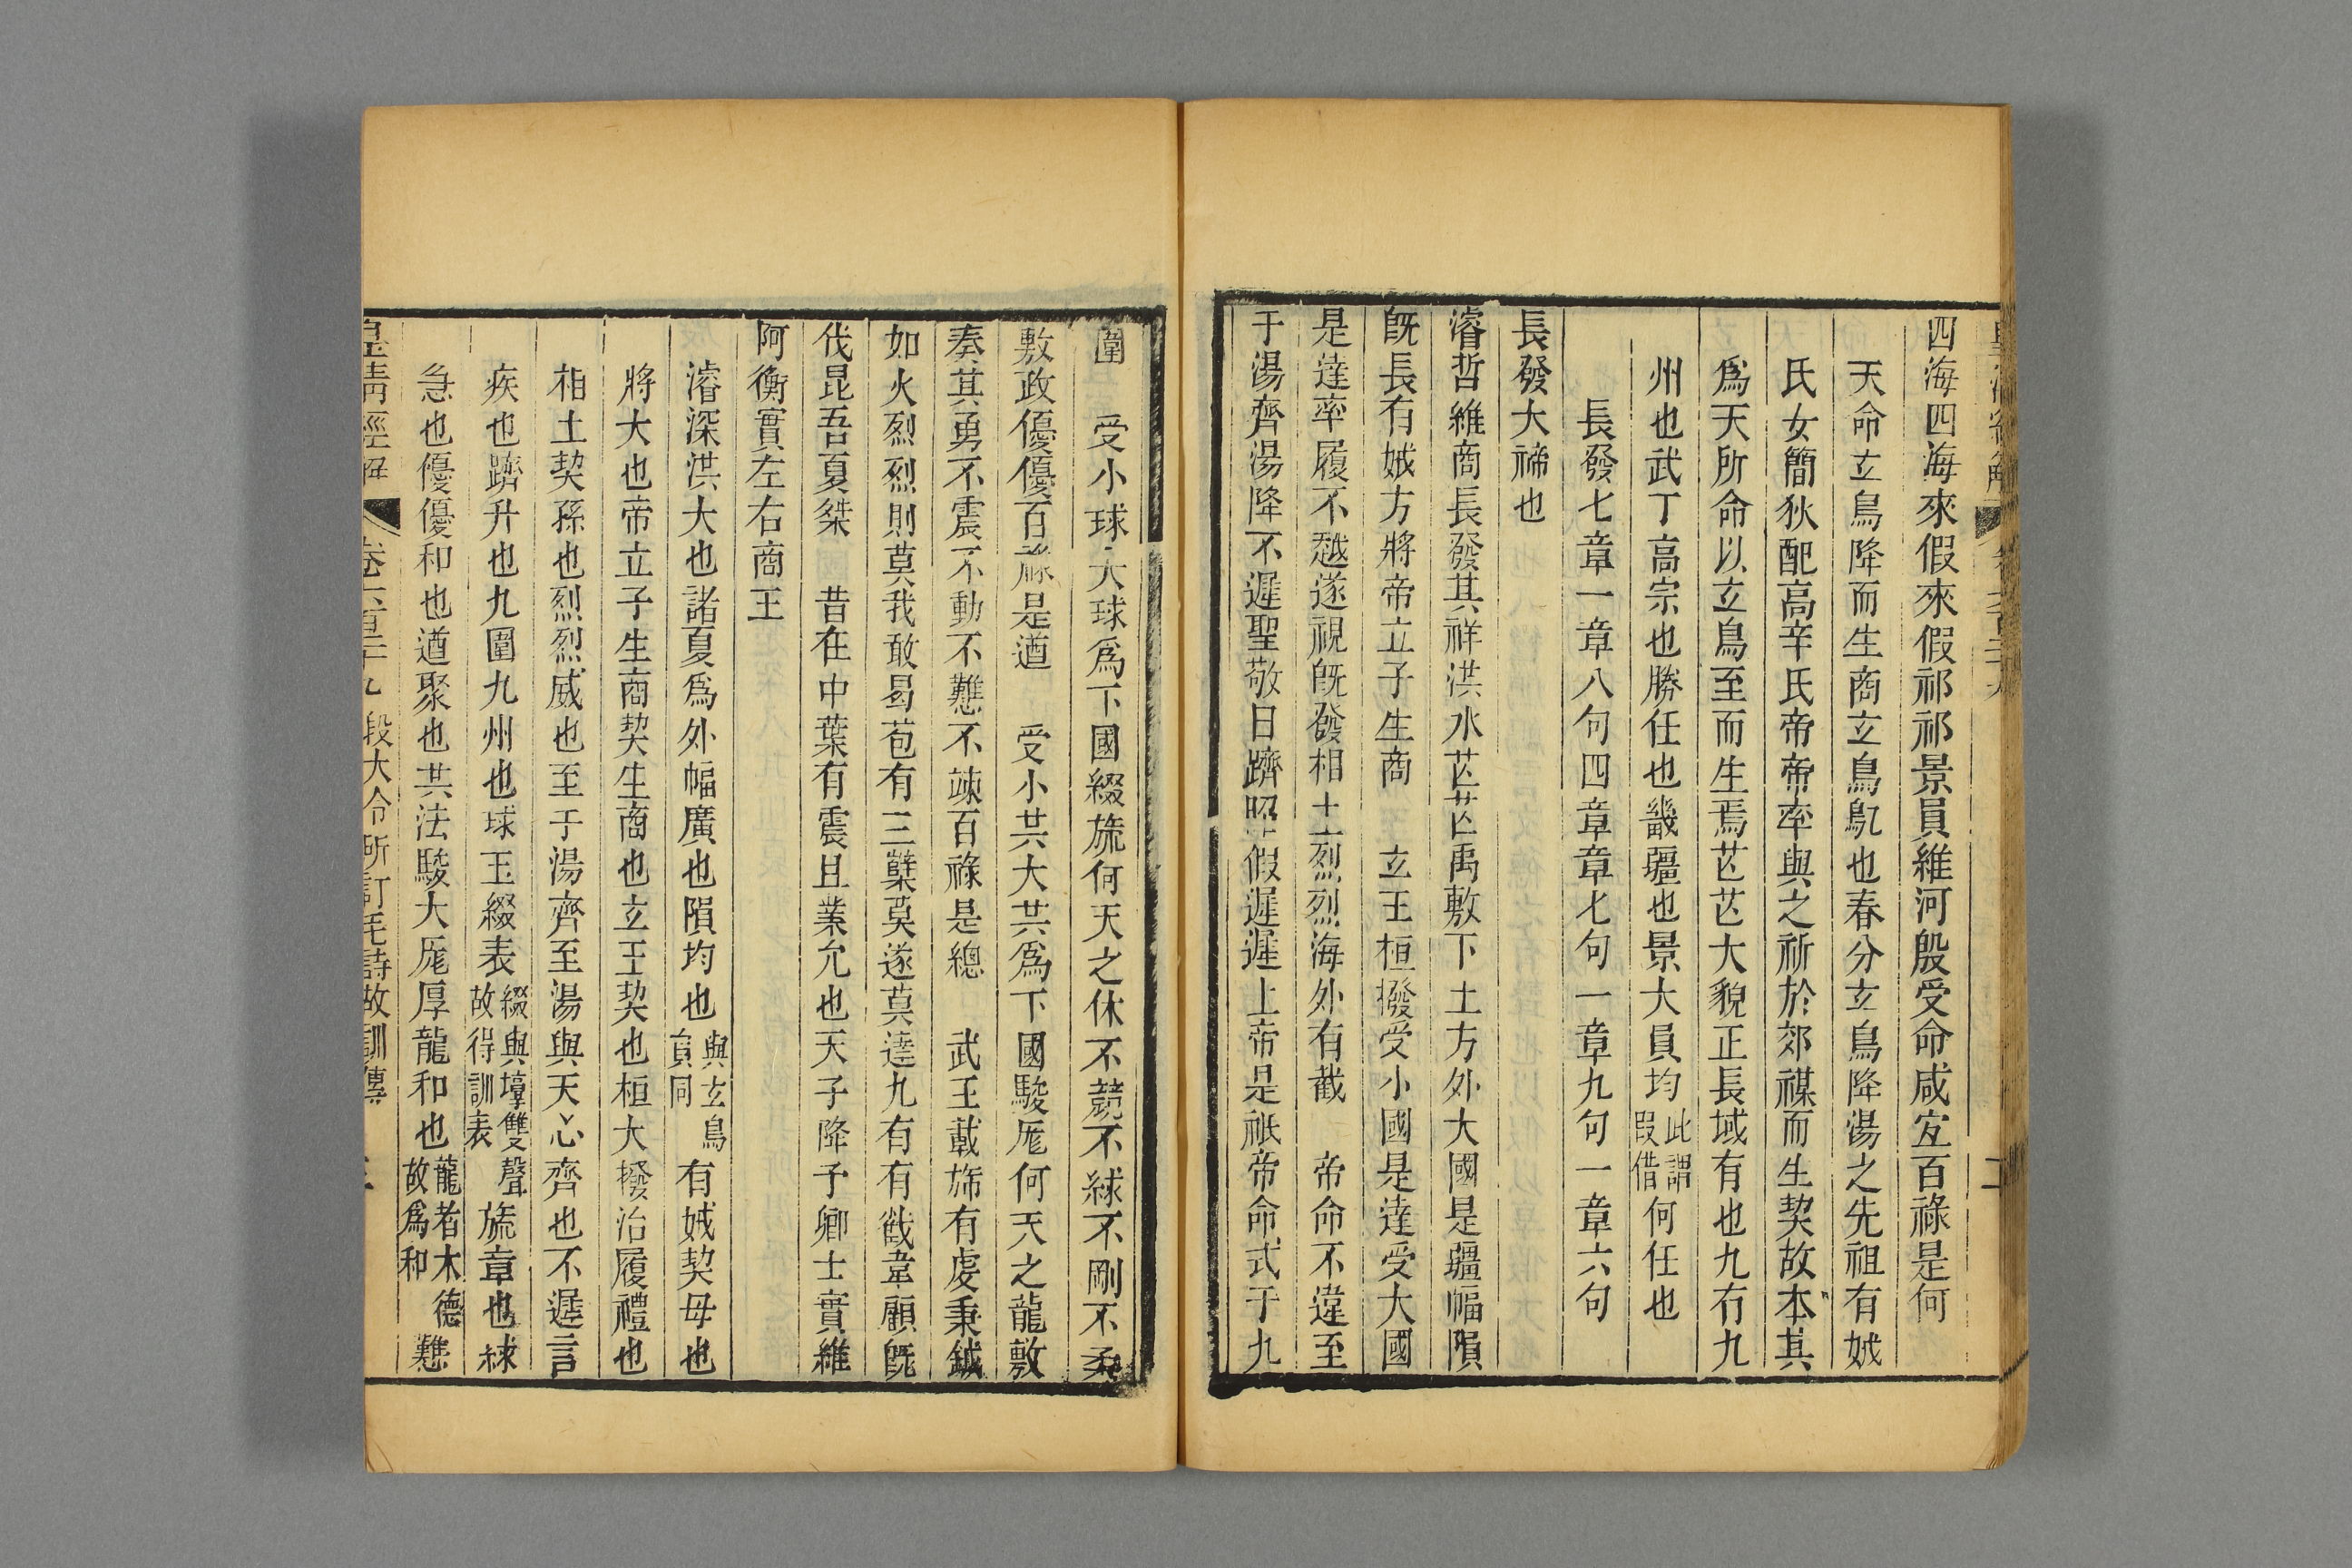 四海四海來假來假祁祁景員維河殷受命咸宐百祿是何
天命玄鳥降而生商玄鳥鳦也春分玄鳥降湯之先祖有娀
氏女簡狄配高辛氏帝帝率與之祈於郊禖而生契故本其
爲天所命以玄鳥至而生焉芒芒大貌正長域有也九有九
州也武丁高宗也勝任也畿疆也景大員均此謂叚借何任也
長發七章一章八句四章章七句一章九句一章六句
長發大禘也
濬哲維商長發其祥洪水芒芒禹敷下土方外大國是疆幅隕
旣長有娀方將帝立子生商　玄王桓撥受小國是達受大國
是達率履不越遂視旣發相土烈烈海外有截　帝命不違至
于湯齊湯降不遲聖敬日躋昭假遲遲上帝是祇帝命式于九
圍　受小球大球爲下國綴旒何天之休不競不絿不剛不柔
敷政優優百祿是遒　受小共大共爲下國駿厖何天之龍敷
奏其勇不震不動不戁不竦百祿是總　武王載旆有虔秉鉞
如火烈烈則莫我敢曷苞有三櫱莫遂莫達九有有截韋顧旣
伐昆吾夏桀　昔在中葉有震且業允也天子降予卿士實維
阿衡實左右商王
濬深洪大也諸夏爲外幅廣也隕均也與玄鳥員同有娀契母也
將大也帝立子生商契生商也玄王契也桓大撥治履禮也
相土契孫也烈烈威也至于湯齊至湯與天心齊也不遲言
疾也躋升也九圍九州也球玉綴表綴與墥雙聲故得訓表旒章也絿
急也優優和也遒聚也共法駿大厖厚龍和也龍者木德故爲和戁
皇淸經解　卷六百二十九　段大令所訂毛詩故訓傳